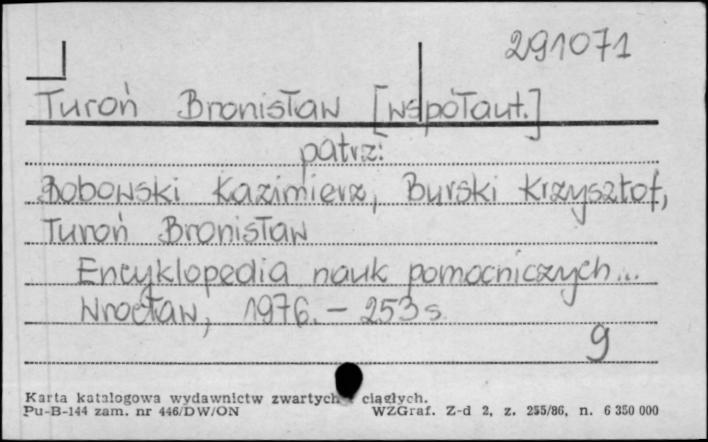 291071
Turoń Bronisław [współaut.]
patrz:
Bobowski Kazimierz, Burski Krzysztof,
Turoń Bronisław
Encyklopedia nauk pomocniczych...
Wrocław, 1976. – 253 s.
9
Karta katalogowa wydawnictw zwartych i ciągłych.
Pu-B-144 zam. nr 446/DW/ON WZGraf. Z-d 2, z. 255/86, n. 6 350 000